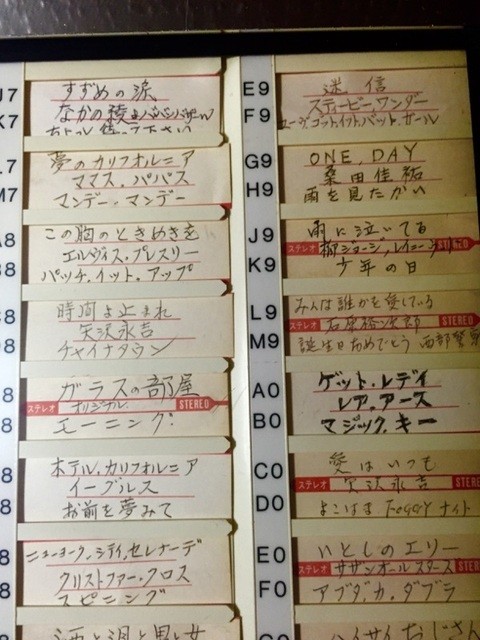 J7
K7
すずめの涙
なかの綾とババンバザール
待って下さい
L7
M7
夢のカリフォルニア
ママス.パパス
マンデー.マンデー
A8
B8
この胸のときめきを
エルヴィス.プレスリー
パッチ.イット.アップ
8
8
時間よ止まれ
矢沢永吉
チャイナタウン
8
8
ガラスの部屋
ステレオ オリジナル STEREO
モーニング.
8
8
ホテル.カリフォルニア
イーグルス
お前を夢みて
8
8
ニューヨーク.シティ.セレナーデ
クリストファー.クロス
スピニング
酒と泪と男と女
E9
F9
迷信
スティービー.ワンダー
ユーヴ.ゴット.イット.バット.ガール
G9
H9
ONE,DAY
桑田佳祐
雨を見たかい
J9
K9
雨に泣いてる
ステレオ 柳ジョージ,レイニー STEREO
少年の日
L9
M9
みんな誰かを愛している
ステレオ 石原裕次郎 STEREO
誕生日おめでとう 西部警察
A0
B0
ゲット.レディ
レア.アース
マジック.キー
C0
D0
愛はいつも
ステレオ 矢沢永吉 STERE
よこはま.FOGGYナイト
E0
F0
いとしのエリー
ステレオ サザンオールスターズ STERE
アブダ.カ.ダブラ
ハイサイおじさん